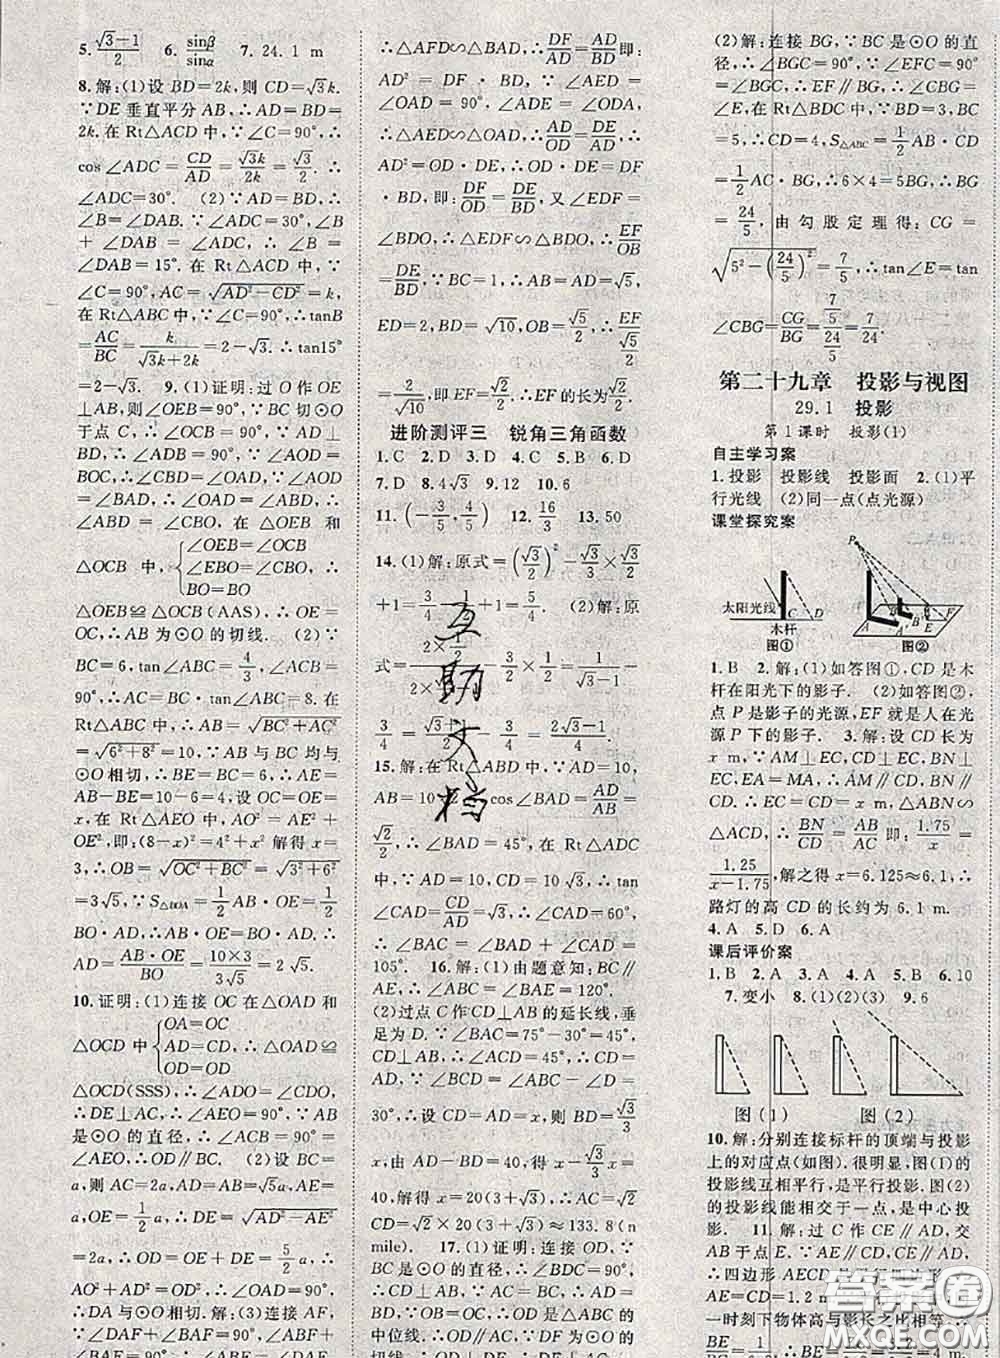 5. (√3−1)/2 6. sinβ/sinα 7. 24.1 m
8. 解:(1)设 BD=2k,则 CD=√3k.
∵DE 垂直平分 AB,∴AD=BD=
2k. 在 Rt△ACD 中,∵∠C=90°,∴
cos∠ADC=CD/AD=√3k/2k=√3/2. ∴
∠ADC=30°. (2)∵AD=BD,∴
∠B=∠DAB. ∵∠ADC=30°,∠B
+∠DAB=∠ADC,∴∠B=
∠DAB=15°. 在 Rt△ACD 中,∵
∠C=90°,AC=√(AD²−CD²)=k. 在
Rt△ABC 中,∵∠C=90°,∴tanB
=AC/BC=k/(√3k+2k)=2−√3. ∴tan15°
=2−√3. 9.(1)证明:过 O 作 OE⊥
AB,∴∠OEB=90°,∵BC 切⊙O
于点 C,∴∠OCB=90°,∴∠OCB
=∠OEB. ∵∠D=90°,∠AOD=
∠BAD,∴∠ABD=∠OAD,∵
∠BOC=∠AOD,∴∠OBC=∠OAD,
∴∠ABD=∠CBO. 在△OEB 和
△OCB 中,{∠OEB=∠OCB
∠EBO=∠CBO,∴
BO=BO
△OEB≌△OCB(AAS). ∴OE=
OC,∴AB 为⊙O 的切线. (2)∵
BC=6,tan∠ABC=4/3,∠ACB=
90°,∴AC=BC·tan∠ABC=8. 在
Rt△ABC 中,∴AB=√(BC²+AC²)=
√(6²+8²)=10. ∵BC 与 AB 均与
⊙O 相切,∴BE=BC=6,∴AE=
AB−BE=10−6=4,设 OC=OE=
x,在 Rt△AEO 中,AO²=AE²+
OE²,即:(8−x)²=4²+x² 解得:x=
3,∴OB=√(OC²+BC²)=√(3²+6²)
=3√5,∵S△BOA=1/2AB·OE=1/2
BO·AD,∴AB·OE=BO·AD,∴
AD=AB·OE/BO=10×3/3√5=2√5.
10. 证明:(1)连接 OC 在△OAD 和
△OCD 中{OA=OC
AD=CD,∴△OAD≌
OD=OD
△OCD(SSS),∴∠ADO=∠CDO,
∴DE⊥AC,∴∠AEO=90°,∵AB
是⊙O 的直径,∴∠ACB=90°=
∠AEO,∴OD∥BC. (2)设 BC=
a,则 AC=2a,∴AD=AB=√5a,∵
OE∥BC,且 AO=BO,∴OE=1/2BC=1/2
a,AE=CE=1/2AC=a,在△AED
中,DE=√(AD²−AE²)
=2a,∴OD=OE+DE=5/2a,∴
AO²+AD²=OD²,∴∠OAD=90°,
∴DA与⊙O相切. (3)连接 AF,∵
∠AFD=∠BAD=90°,∠ADF=∠BDA,
∴△AFD∽△BAD,∴DF/AD=AD/BD即:
AD²=DF·BD,∵∠AED=
∠OAD=90°,∠ADE=∠ODA,
∴△AED∽△OAD,∴AD/OD=DE/AD,∴
AD²=OD·DE,∴OD·DE=DF
·BD,即:DF/OD=DE/BD,又∠EDF=
∠BDO,∴△EDF∽△BDO,∴EF/OB=
DE/BD,∵BC=1,∴AB=AD=√5,
ED=2,BD=√10,OB=√5/2,∴EF/(√5/2)
=2/√10,即EF=√2/2,∴EF的长为√2/2.
进阶测评三 锐角三角函数
1.C 2.D 3.D 4.C 5.B 6.D
7.D 8.4√3 9.12 10.6
11.(−3/5,4/5) 12.16/3 13.50
14.(1)解:原式=(√3/2)²−√3/3×√3/2
+1=3/4−1/2+1=5/4. (2)解:原
3/4=(√3+1)/2−3/4=(2√3−1)/4.
15.解:在 Rt△ABD 中,∵AD=10,
AB=10√2,∴cos∠BAD=AD/AB=
√2/2,∴∠BAD=45°,在 Rt△ADC
中,∵AD=10,CD=10√3,∴tan
∠CAD=CD/AD=√3,∴∠CAD=60°,
∴∠BAC=∠BAD+∠CAD=
105°. 16.解:(1)由题意知:BC∥
AE,∴∠ABC=∠BAE=120°.
(2)过点 C 作CD⊥AB 的延长线,垂
足为 D. ∵∠BAC=75°−30°=45°,
CD⊥AB,∴∠ACD=45°,∴AD=
CD. ∵BC∥AE,∴∠DCB=∠E=
30°,∴设 CD=AD=x,则 BD=√3/3
x,由 AD−BD=40,得 x−√3/3x=
40,x=20(3+√3),∴AC=√2CD=
√2×20(3+√3)≈133.8(n
mile). 17.(1)证明:连接 OD,∵
BC 是⊙O 的直径,∴∠BDC=90°,
∴BD⊥AC. ∵AB=BC,∴AD=
DC. ∵OC=OB,∴OD 是△ABC 的
中位线,∴DO∥AB. ∵DF⊥AB,∴
(2)解:连接 BG,∵BC是⊙O的直
径,∴∠BGC=90°,∵EF∥
GC,∴∠BGC=∠BFE=90°,∴EF
∥GC,∴∠CBG=
∠E,在 Rt△BDC 中,∵BD=
5,∴CD=4,S△ABC=1/2AB·CD
=1/2AC·BG,∴6×4=5BG,∴BG
=24/5,由勾股定理得:CG=
√(5²−(24/5)²)=7/5,∴tan∠E=tan
∠CBG=CG/BG=(7/5)/(24/5)=7/24.
第二十九章 投影与视图
29.1 投影
第1课时 投影(1)
自主学习案
1.投影 投影线 投影面 2.(1)平
行光线 (2)同一点(点光源)
课堂探究案
太阳光线 C D 木杆 图①
P A A' B B' E F 图②
1.B 2.解:(1)如答图①,CD是木
杆在阳光下的影子. (2)如答图②,
点 P 是影子的光源,EF 就是人在光
源 P 下的影子. 3.解:设 CD长为
x m,∵AM⊥EC,CD⊥EC,BN⊥
EC,EA=MA,∴AM∥CD∥BN,
∴EC=CD=x m,∴△ABN∽
△ACD,∴BN/CD=AB/AC即:1.75/x=
1.25/(x−1.75),解之得 x=6.125≈6.1,∴
路灯的高 CD 的长约为 6.1 m.
4.A 5.D 6.A
课后评价案
1.B 2.A 3.A 4.A 5.B 6.10
7.变小 8.(1)(2)(3) 9.6
图(1) 图(2)
10.解:分别连接标杆的顶端与投影
上的对应点(如图). 很明显,图(1)的
投影线互相平行,是平行投影. 图(2)
的投影线能相交于一点,是中心投
影. 11.解:过 C 作 CE∥AD,交
∴四边形 AECD
AE=CD=1.2 m
一时刻下物体高与影长之比相等,
互助文档
答案圈
MXQE.COM